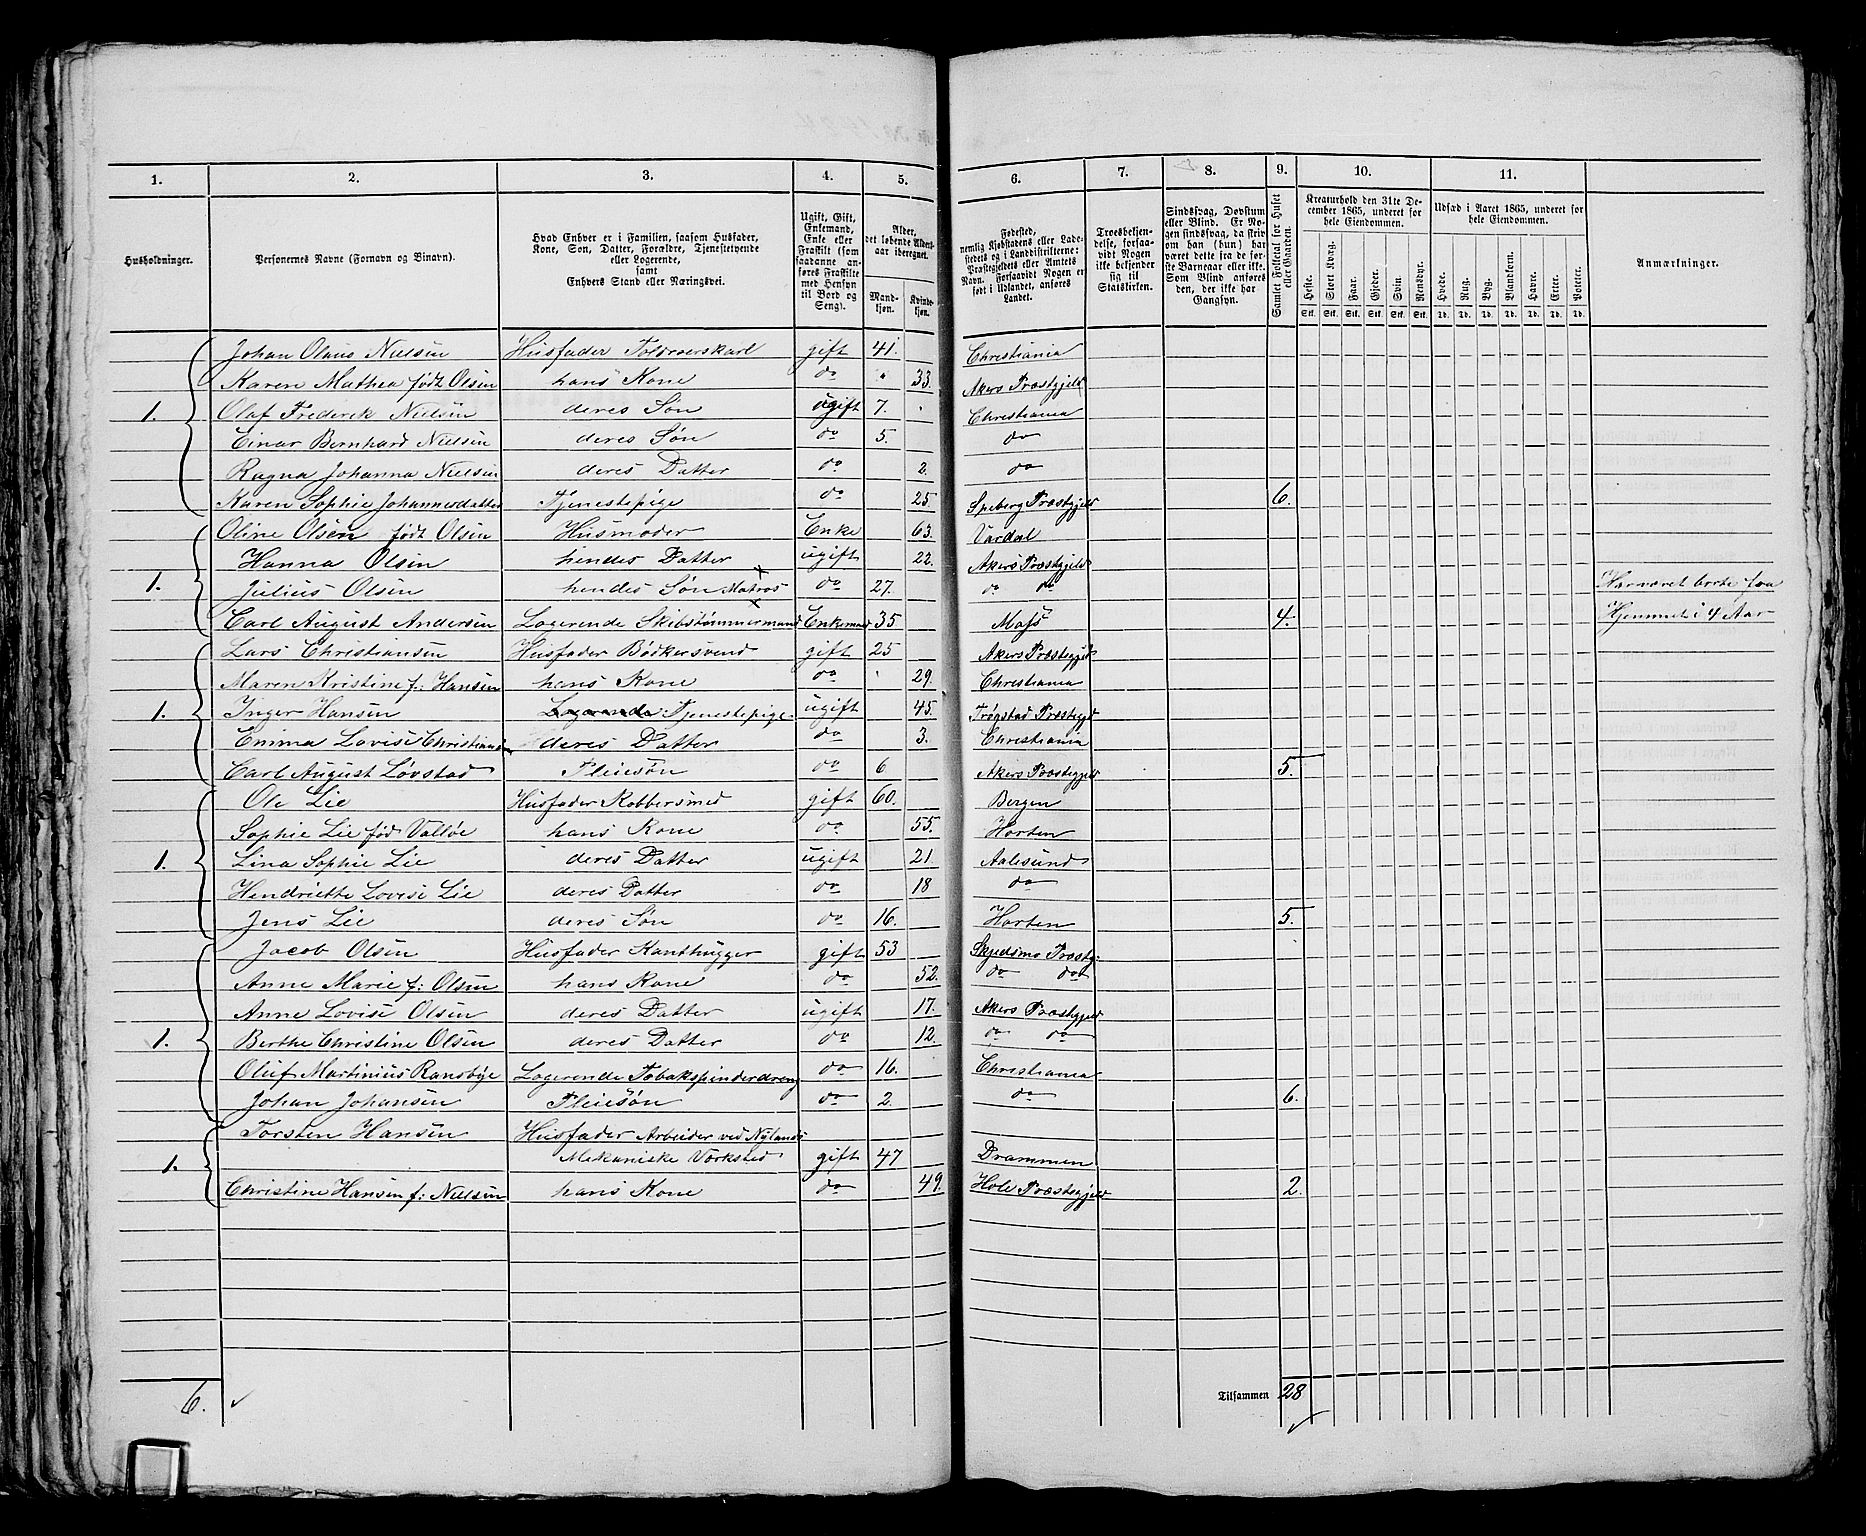 1. 2. 3. 4. 5. 6. 7. 8. 9. 10. 11.
Husholdninger.
Personernes Navne (Fornavn og Binavn).
Hvad Enhver er i Familien, saasom Husfader,
Kone, Søn, Datter, Forældre, Tjenestetyende
eller Logerende,
samt
Enhvers Stand eller Næringsvei.
Ugift, Gift,
Enkemand,
Enke eller
Fraskilt (som
saadanne an-
føres Fraskilte
med Hensyn
til Bord og
Seng).
Alder,
det løbende Alders-
aar iberegnet.
Mand-
kjøn.
Kvinde-
kjøn.
Fødested,
nemlig Kjøbstadens eller Lade-
stedets og i Landdistrikterne:
Præstegjeldets eller Amtets
Navn. Forsaavidt Nogen er
født i Udlandet, anføres
Landet.
Troesbekjen-
delse, forsaa-
vidt Nogen
ikke bekjender
sig til
Statskirken.
Sindssvag, Døvstum
eller Blind. Er No-
gen sindssvag, da skriv
om han (hun) har
været dette fra de før-
ste Barneaar eller ikke.
Som Blind anføres
den, der ikke har
Gangsyn.
Samlet Folketal for Huset
eller Gaarden.
Kreaturhold den 31te De-
cember 1865, underet for
hele Eiendommen.
Heste. Stort Kvæg. Faar. Gjeder. Svin. Rensdyr.
Stk. Stk. Stk. Stk. Stk. Stk.
Udsæd i Aaret 1865, underet for
hele Eiendommen.
Hvede. Rug. Byg. Blandkorn. Havre. Erter. Poteter.
Td. Td. Td. Td. Td. Td. Td.
Anmærkninger.
Johan Olaus Nielsen Husfader Toldroerskarl gift 41. Christiania
Karen Mathea født Olsen hans Kone do " 33. Akers Præstgjeld
1. Olaf Frederik Nielsen deres Søn ugift 7. Christiania
Einar Bernhard Nielsen deres Søn do 5. do
Ragna Johanna Nielsen deres Datter do 2. do
Karen Sophie Johannesdatter Tjenestepige do 25. Speberg Præstgjeld 6.
Oline Olsen født Olsen Husmoder Enke 63. Vardal
Hanna Olsen hendes Datter ugift 22. Akers Præstgjeld
1. Julius Olsen hendes Søn Matros do 27. do do Har været borte fra
Carl August Andersen Logerende Skibstømmermand Enkemand 35 Moss 4. Hjemmet i 4 Aar
Lars Christiansen Husfader Bødkersvend gift 25 Akers Præstegjeld
Maren Kristine f: Hansen hans Kone do 29. Christiania
1. Inger Hansen Logerende Tjenestepige ugift 45. Trøgstad Præstegjeld
Emma Lovise Christiansen deres Datter do 3. Christiania
Carl August Løvstad Pleiesøn do 6 Akers Præstegjeld 5.
Ole Lie Husfader Kobbersmed gift 60. Bergen
Sophie Lie fød Valløe hans Kone do 55. Horten
1. Lina Sophie Lie deres Datter ugift 21 Aalesund
Hendriette Lovise Lie deres Datter do 18 do
Jens Lie deres Søn do 16. Horten 5.
Jacob Olsen Husfader Kanthugger gift 53 Skjedsmo Præstg:
Anne Marie f: Olsen hans Kone do 52. do do
Anne Lovise Olsen deres Datter ugift 17. Akers Præstegjeld
1. Berthe Christine Olsen deres Datter do 12. do do
Oluf Martinius Ransbye Logerende Tobakspinderdreng do 16. Christiania
Johan Johansen Pleiesøn do 2. do 6.
Torsten Hansen Husfader Arbeider ved Nylands
1. Mekaniske Værksted gift 47 Drammen
Christine Hansen f: Nielsen hans Kone do 49. Hole Præstegjeld 2.
6. Tilsammen 28